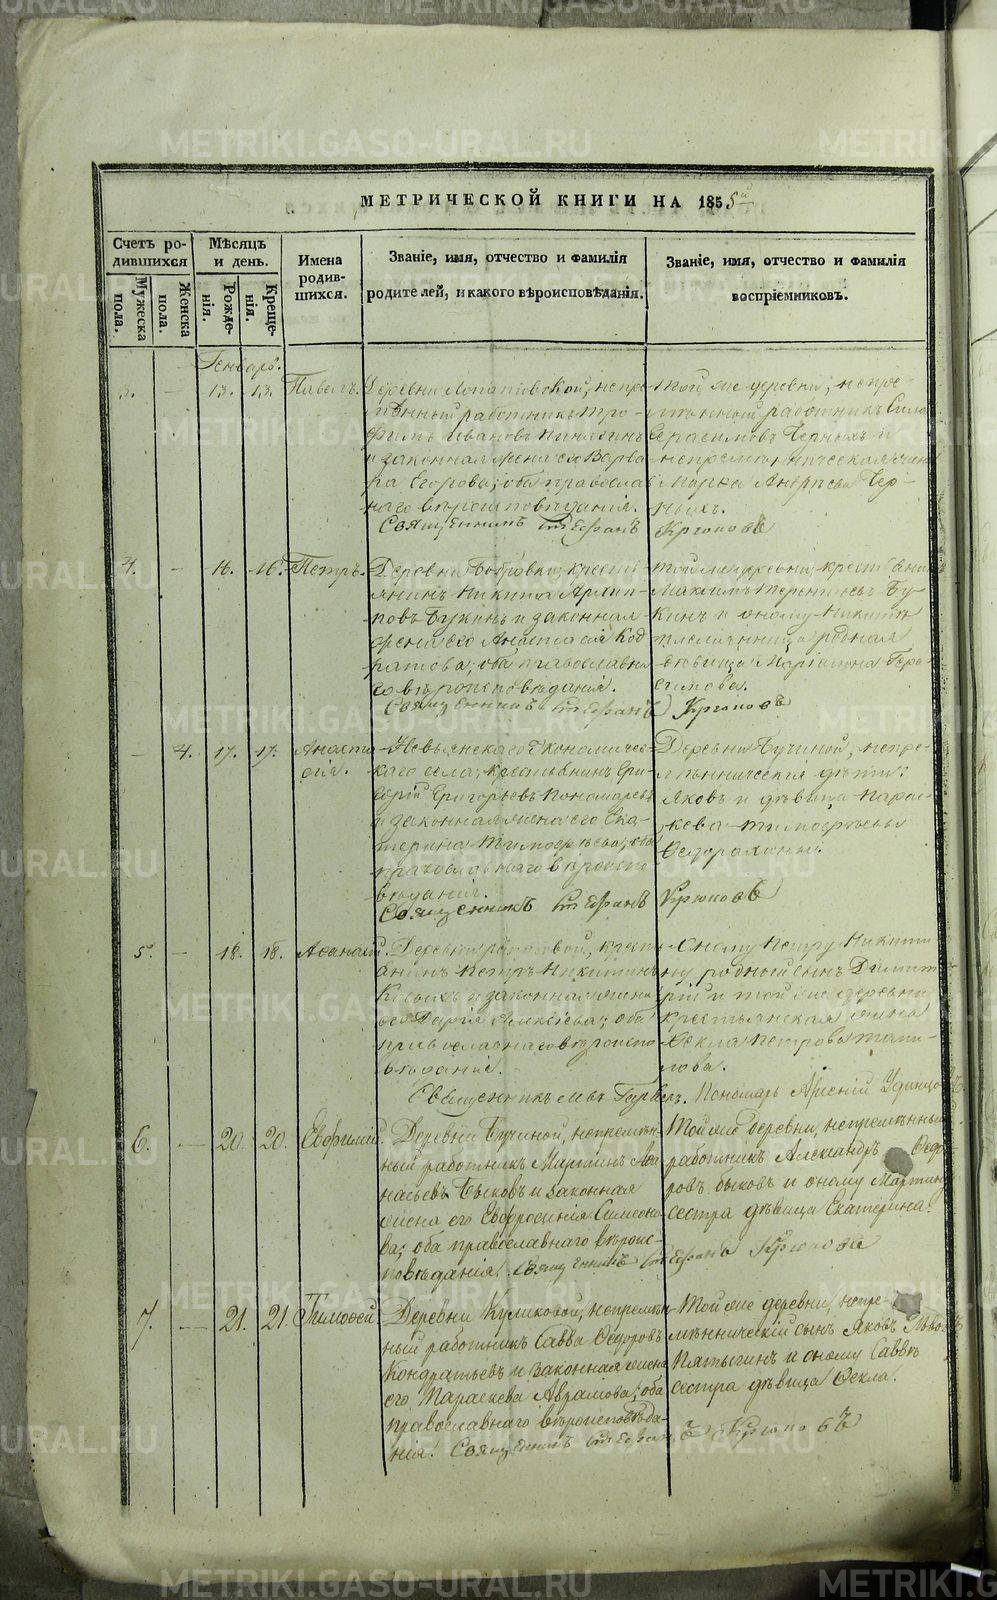 МЕТРИЧЕСКОЙ КНИГИ НА 1855й
Счетъ родившихся
Мужеска пола.
Женска пола.
Мѣсяцъ и день.
Рожденія.
Крещенія.
Имена родившихся.
Званіе, имя, отчество и фамилія родителей, и какого вѣроисповѣданія.
Званіе, имя, отчество и фамилія воспріемниковъ.
Генварь.
3. — 13. 13. Павелъ.
Деревни Лопатовской, непре-
мѣнный работникъ Тро-
фимъ Ивановъ
и законная жена его Варва-
ра Егорова; оба православ-
наго вѣроисповѣданія.
Той же деревни, непре-
мѣнный работникъ Сила
Герасимовъ Черныхъ и
непремѣнническая жена
Марѳа Андреева Чер-
ныхъ.
Священникъ Стефанъ Крюковъ
4. — 16. 16. Петръ.
Деревни Бобровки, кресть-
янинъ Никита Архип-
повъ Букинъ и законная
жена его Анастасія Код-
ратова; оба православна-
го вѣроисповѣданія.
Той же деревни, крестьянинъ
Максимъ Терентьевъ Бу-
кинъ и оному Никитѣ
племянница родная
дѣвица Маріамна Гера-
симова.
Священникъ Стефанъ Крюковъ
— 4. 17. 17. Анаста-
сія.
Невьянскаго Экономичес-
каго села, крестьянинъ Гри-
горій Григорьевъ Пономаревъ
и законная жена его Ека-
терина Тимофѣева; оба
православнаго вѣроиспо-
вѣданія.
Деревни Бучиной, непре-
мѣнническія дѣти:
Яковъ и дѣвица Парас-
кева Тимофѣевы
Священникъ Стефанъ Крюковъ
5. — 18. 18. Аѳанасій.
Деревни кресть-
янинъ Петръ Никитинъ
и законная жена
его Дарія Алексіева; оба
православнаго вѣроиспо-
вѣданія.
Оному Петру Никити-
ну родный сынъ Димит-
рій и той же деревни
крестьянская жена
Ѳекла Петрова
Священникъ Левъ Пономарь Арсеній Удинцовъ.
6. — 20. 20. Евфимій.
Деревни Бучиной, непремѣн-
ный работникъ Мартинъ Аѳа-
насьевъ Быковъ и законная
жена его Евфросинія Симеоно-
ва; оба православнаго вѣроис-
повѣданія.
Той же деревни, непремѣнный
работникъ Александръ Ѳедо-
ровъ Быковъ и оному Мартину
сестра дѣвица Екатерина.
Священникъ Стефанъ Крюковъ
7. — 21. 21. Тимоѳей.
Деревни Куликовой, непремѣн-
ный работникъ Савва Ѳедоровъ
Кондратьевъ и законная жена
его Параскева Аврамова; оба
православнаго вѣроисповѣда-
нія.
Той же деревни, непре-
мѣнническій сынъ Яковъ Львовъ
Пятыгинъ и оному Саввѣ
сестра дѣвица Ѳекла.
Священникъ Стефанъ Крюковъ
METRIKI.GASO-URAL.RU